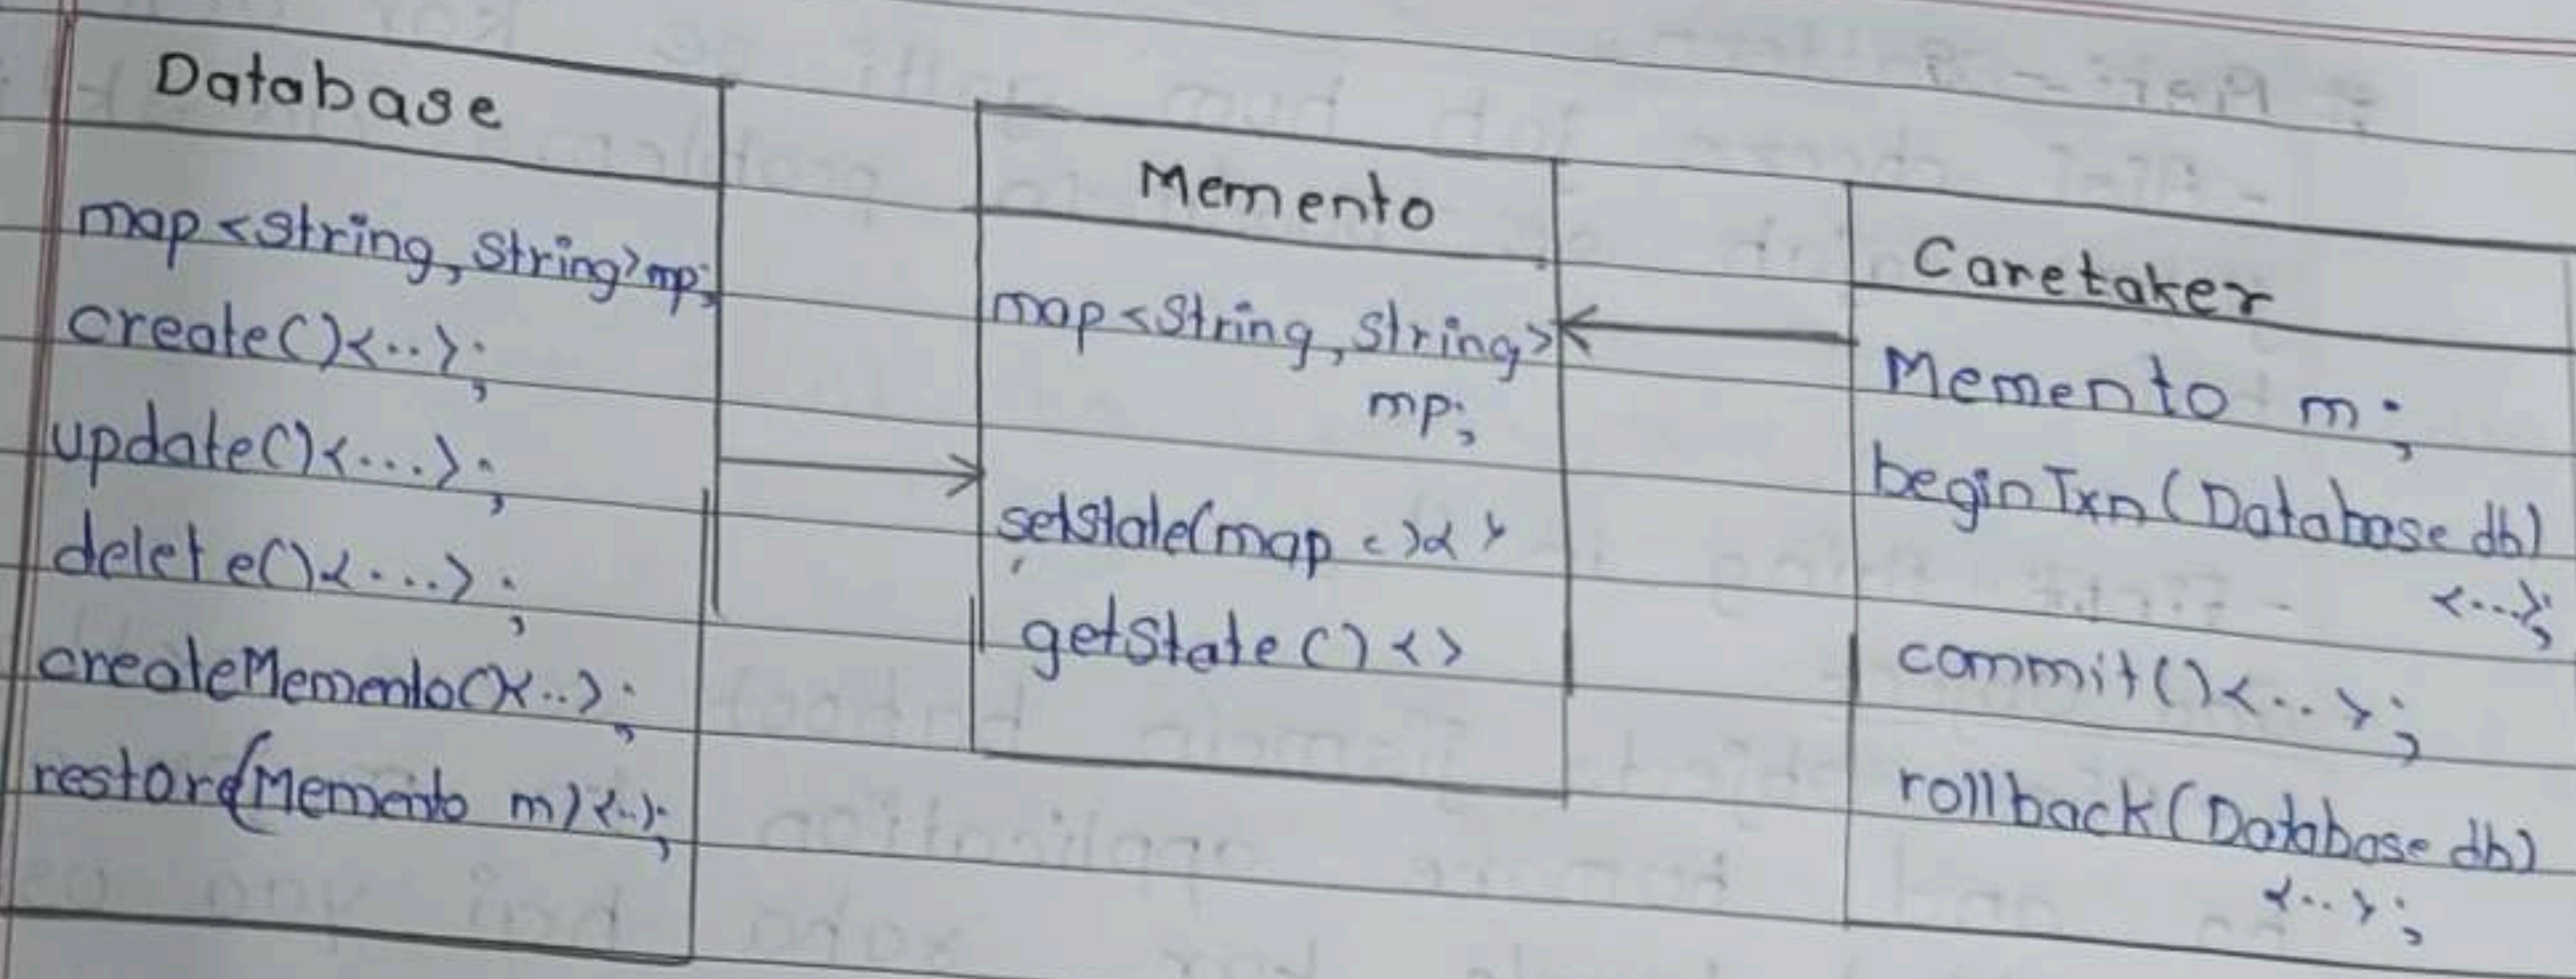 Database
map<string, string>mp;
create(){..};
update(){...};
delete(){...};
createMemento(){..};
restore(Memento m){..};
Memento
map<string, string>
mp;
setState(map<>){}
getState(){}
Caretaker
Memento m;
beginTxn(Database db)
{...};
commit(){..};
rollback(Database db)
{..};